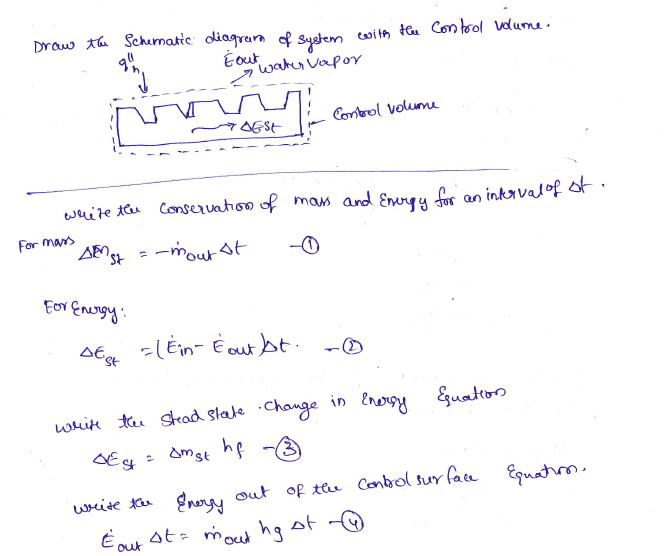 Draw the Schematic diagram of system with the Control volume.
q''in
Ėout
water vapor
Control volume
→ ΔEst
write the Conservation of mass and Energy for an interval of Δt.
For mass
Δmst = -ṁout Δt -①
For Energy:
ΔEst = (Ėin - Ėout)Δt. -②
write the Stead state change in Energy Equation
ΔEst = Δmst hf -③
write the Energy out of the Control surface Equation.
Ėout Δt = ṁout hg Δt -④